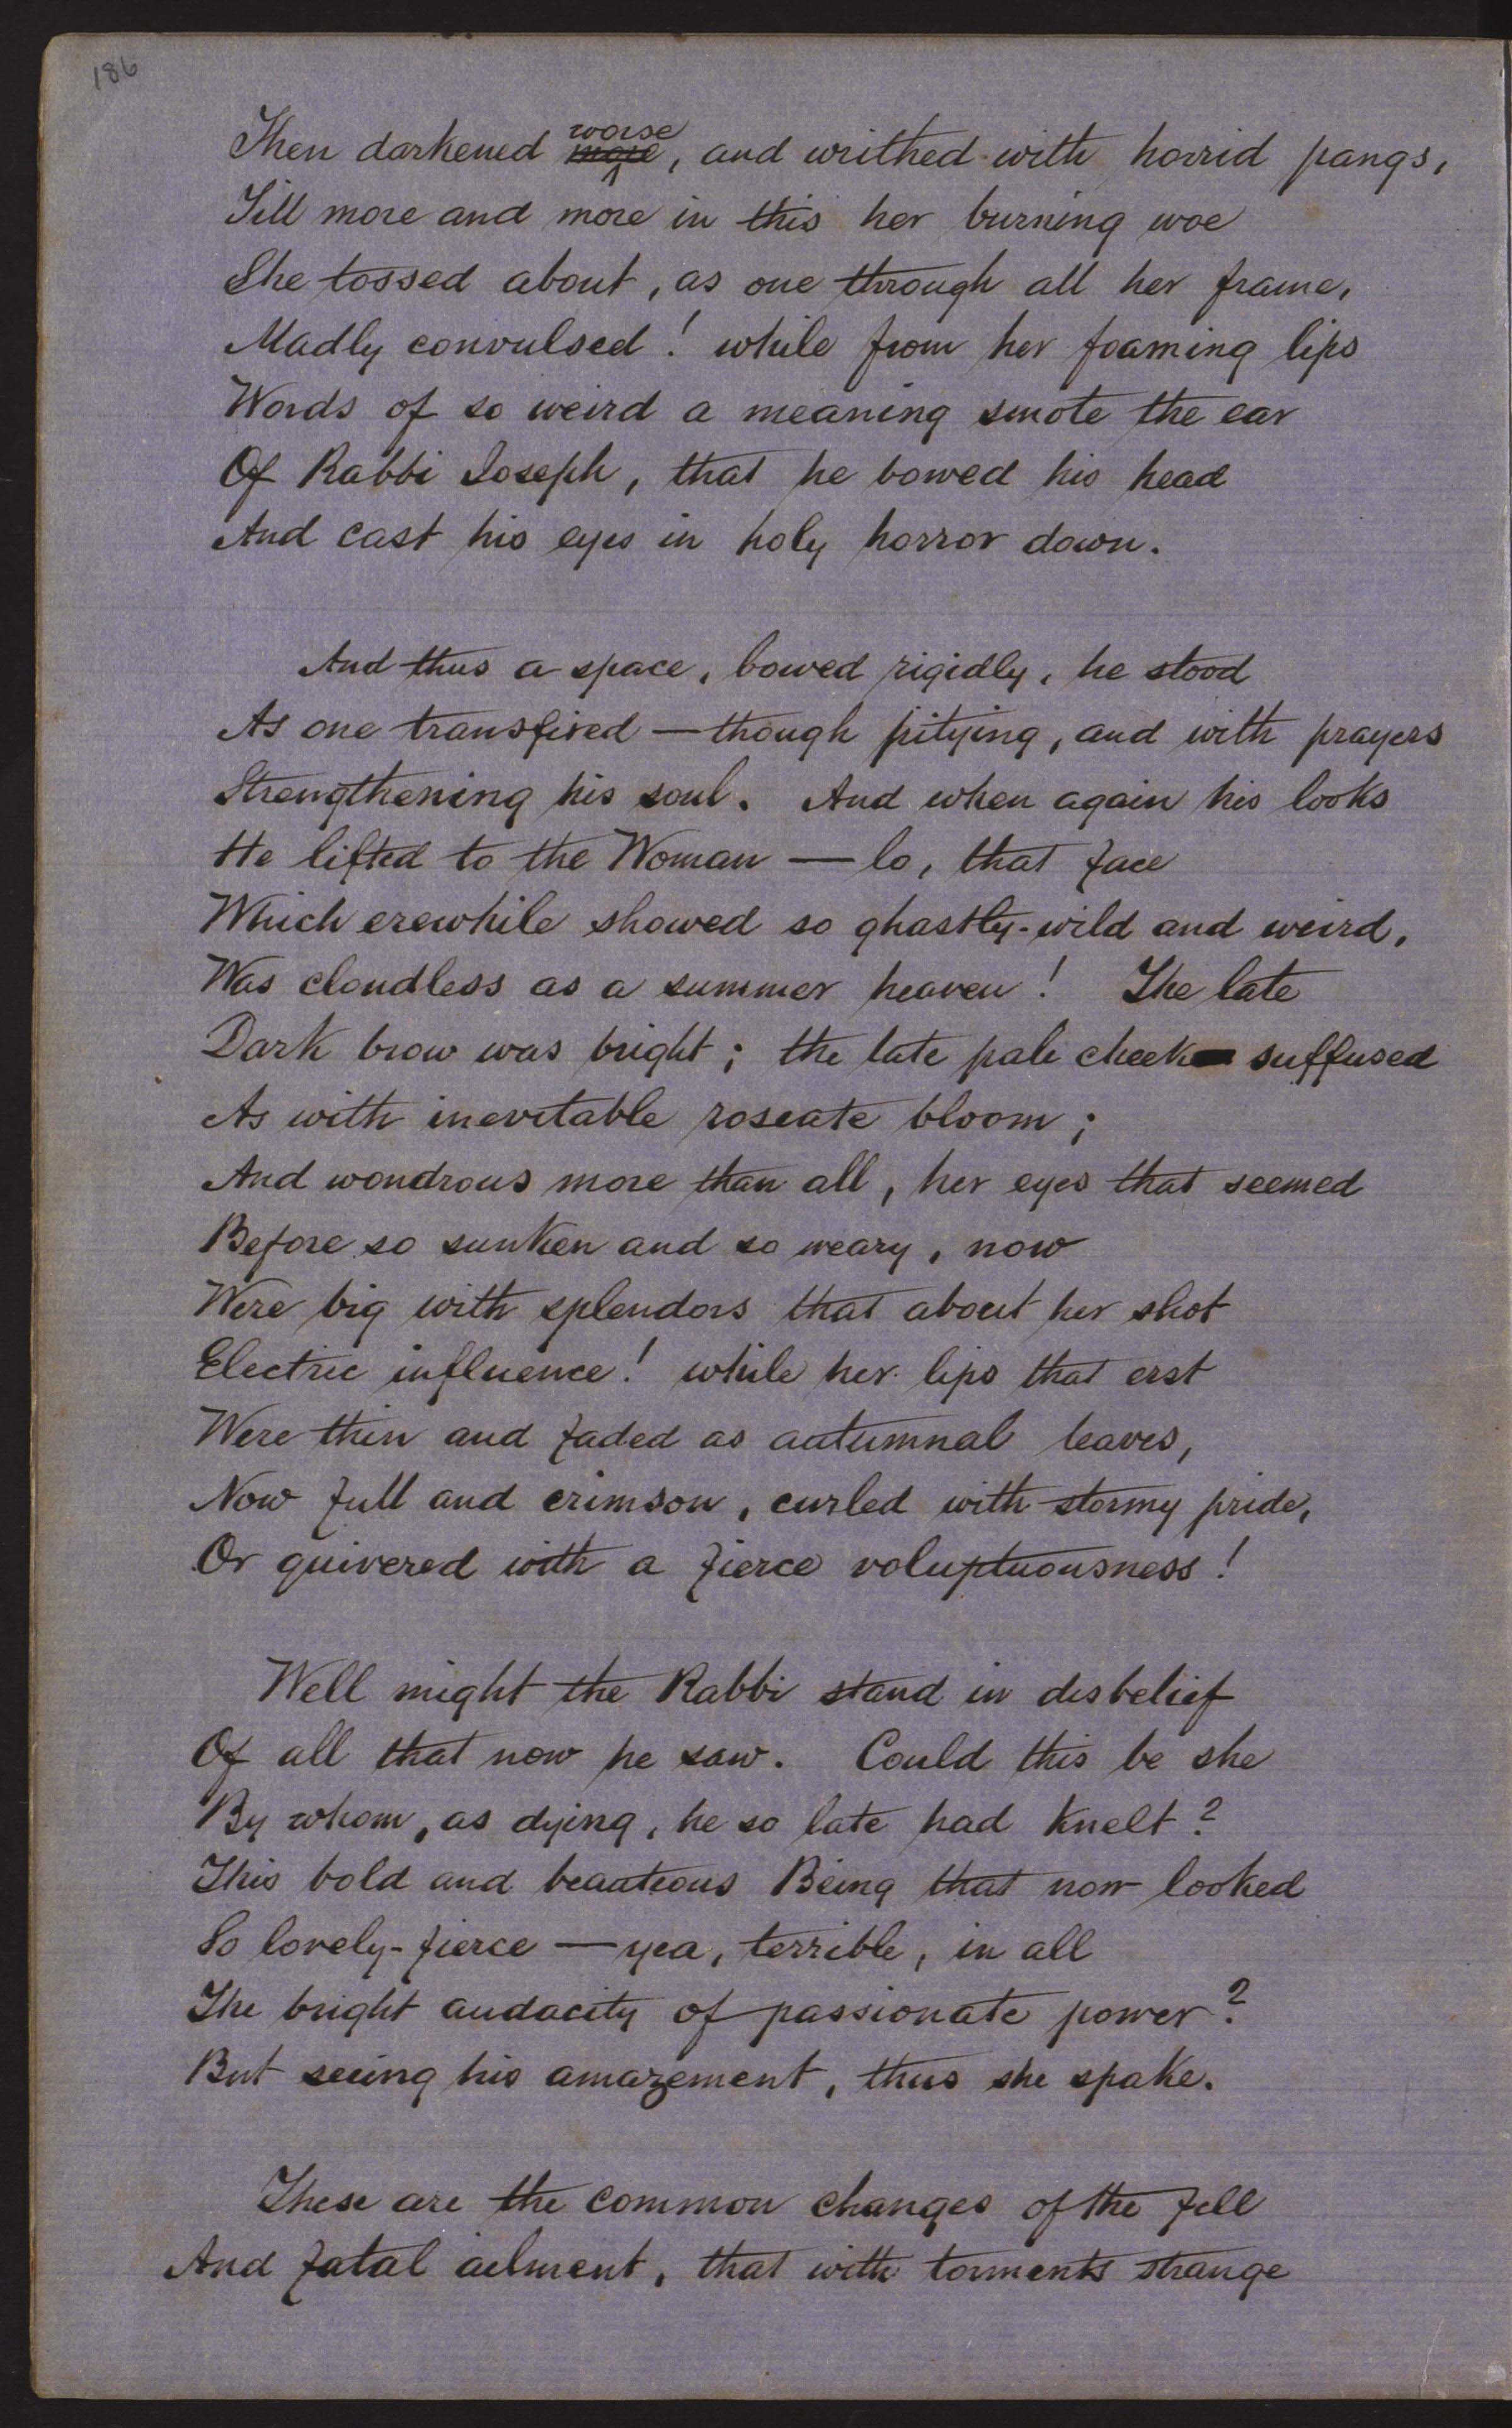 186
Then darkened worse, and writhed with horrid pangs,
Till more and more in this her burning woe
She tossed about, as one through all her frame,
Madly convulsed! while from her foaming lips
Words of so weird a meaning smote the ear
Of Rabbi Joseph, that he bowed his head
And cast his eyes in holy horror down.
And thus a space, bowed rigidly, he stood
As one transfixed — though pitying, and with prayers
Strengthening his soul. And when again his looks
He lifted to the Woman — lo, that face
Which erewhile showed so ghastly-wild and weird,
Was cloudless as a summer heaven! The late
Dark brow was bright; the late pale cheek suffused
As with inevitable roseate bloom;
And wondrous more than all, her eyes that seemed
Before so sunken and so weary, now
Were big with splendors that about her shot
Electric influence! while her lips that erst
Were thin and faded as autumnal leaves,
Now full and crimson, curled with stormy pride,
Or quivered with a fierce voluptuousness!
Well might the Rabbi stand in disbelief
Of all that now he saw. Could this be she
By whom, as dying, he so late had knelt?
This bold and beauteous Being that now looked
So lovely-fierce — yea, terrible, in all
The bright audacity of passionate power?
But seeing his amazement, thus she spake.
These are the common changes of the fell
And fatal ailment, that with torments strange